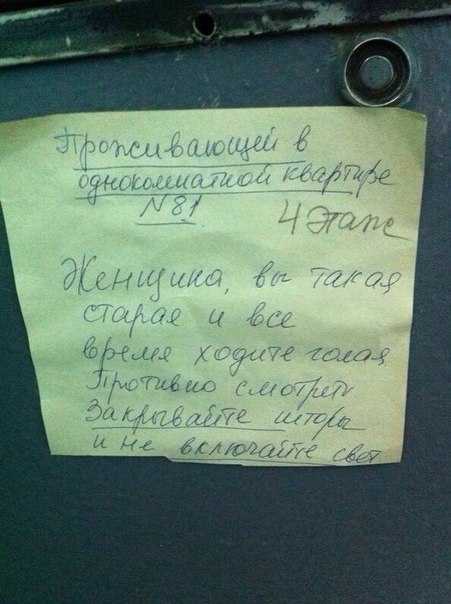 Проживающей в
однокомнатной квартире
N 81
4 Этаж
Женщина, вы такая
старая и все
время ходите голая
Противно смотреть
Закрывайте шторы
и не включайте свет